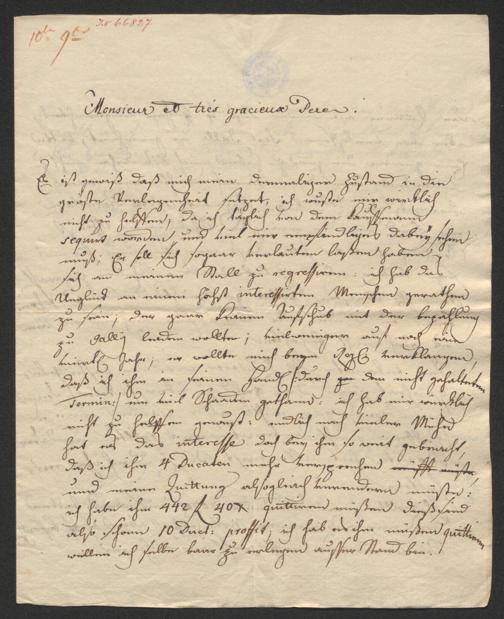 10te 9te № 66827
Monsieur et trés gracieux Pere.
Es ist gewiß daß mich mein dermaliger Zustand in die
größte Verlegenheit setzet, ich wuste mir wirklich
nicht zu helfen, da ich täglich von dem Kaufmann
sequirt worden, und viel mir empfindliches dabey sehen
muß; Er soll sich sogar verlauten lassen haben
sich an meinen Stall zu regressiren: ich hab das
Unglück an einen höchst interessirten Menschen gerathen
zu seyn; der gar keinen Aufschub mit der bezahlung
zu leiden wollte; auf noch ein
Jahr, er wollte mich beym verklangen,
daß ich ihm an seinem Handl durch dem nicht gehaltenen
Termin: um viel Schaden gethan. ich hab mir wirklich
nicht zu helfen gewust: endlich nach vieler Mühe
hat es das interesse doch bey ihm so weit gebracht,
daß ich ihm 4 Ducaten mehr versprechen
und meine Quittung alsogleich verändern müste:
ich habe ihm 442 f 40 x quittiren müssen dieß sind
also schon 10 Duct: profit, ich hab es ihm müßen quittiren
weillen ich selbe baar zu erlegen ausser Stand bin.